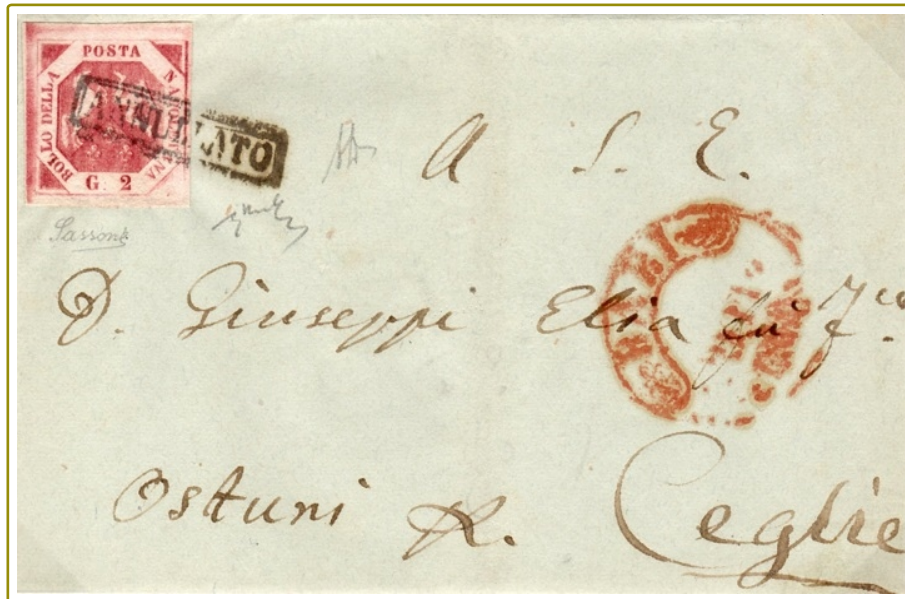 BOLLO DELLA POSTA NAPOLETANA
G. 2
ANNULLATO
Sassone
A S. E.
D. Giuseppi Elia fu
Ostuni
Ceglie